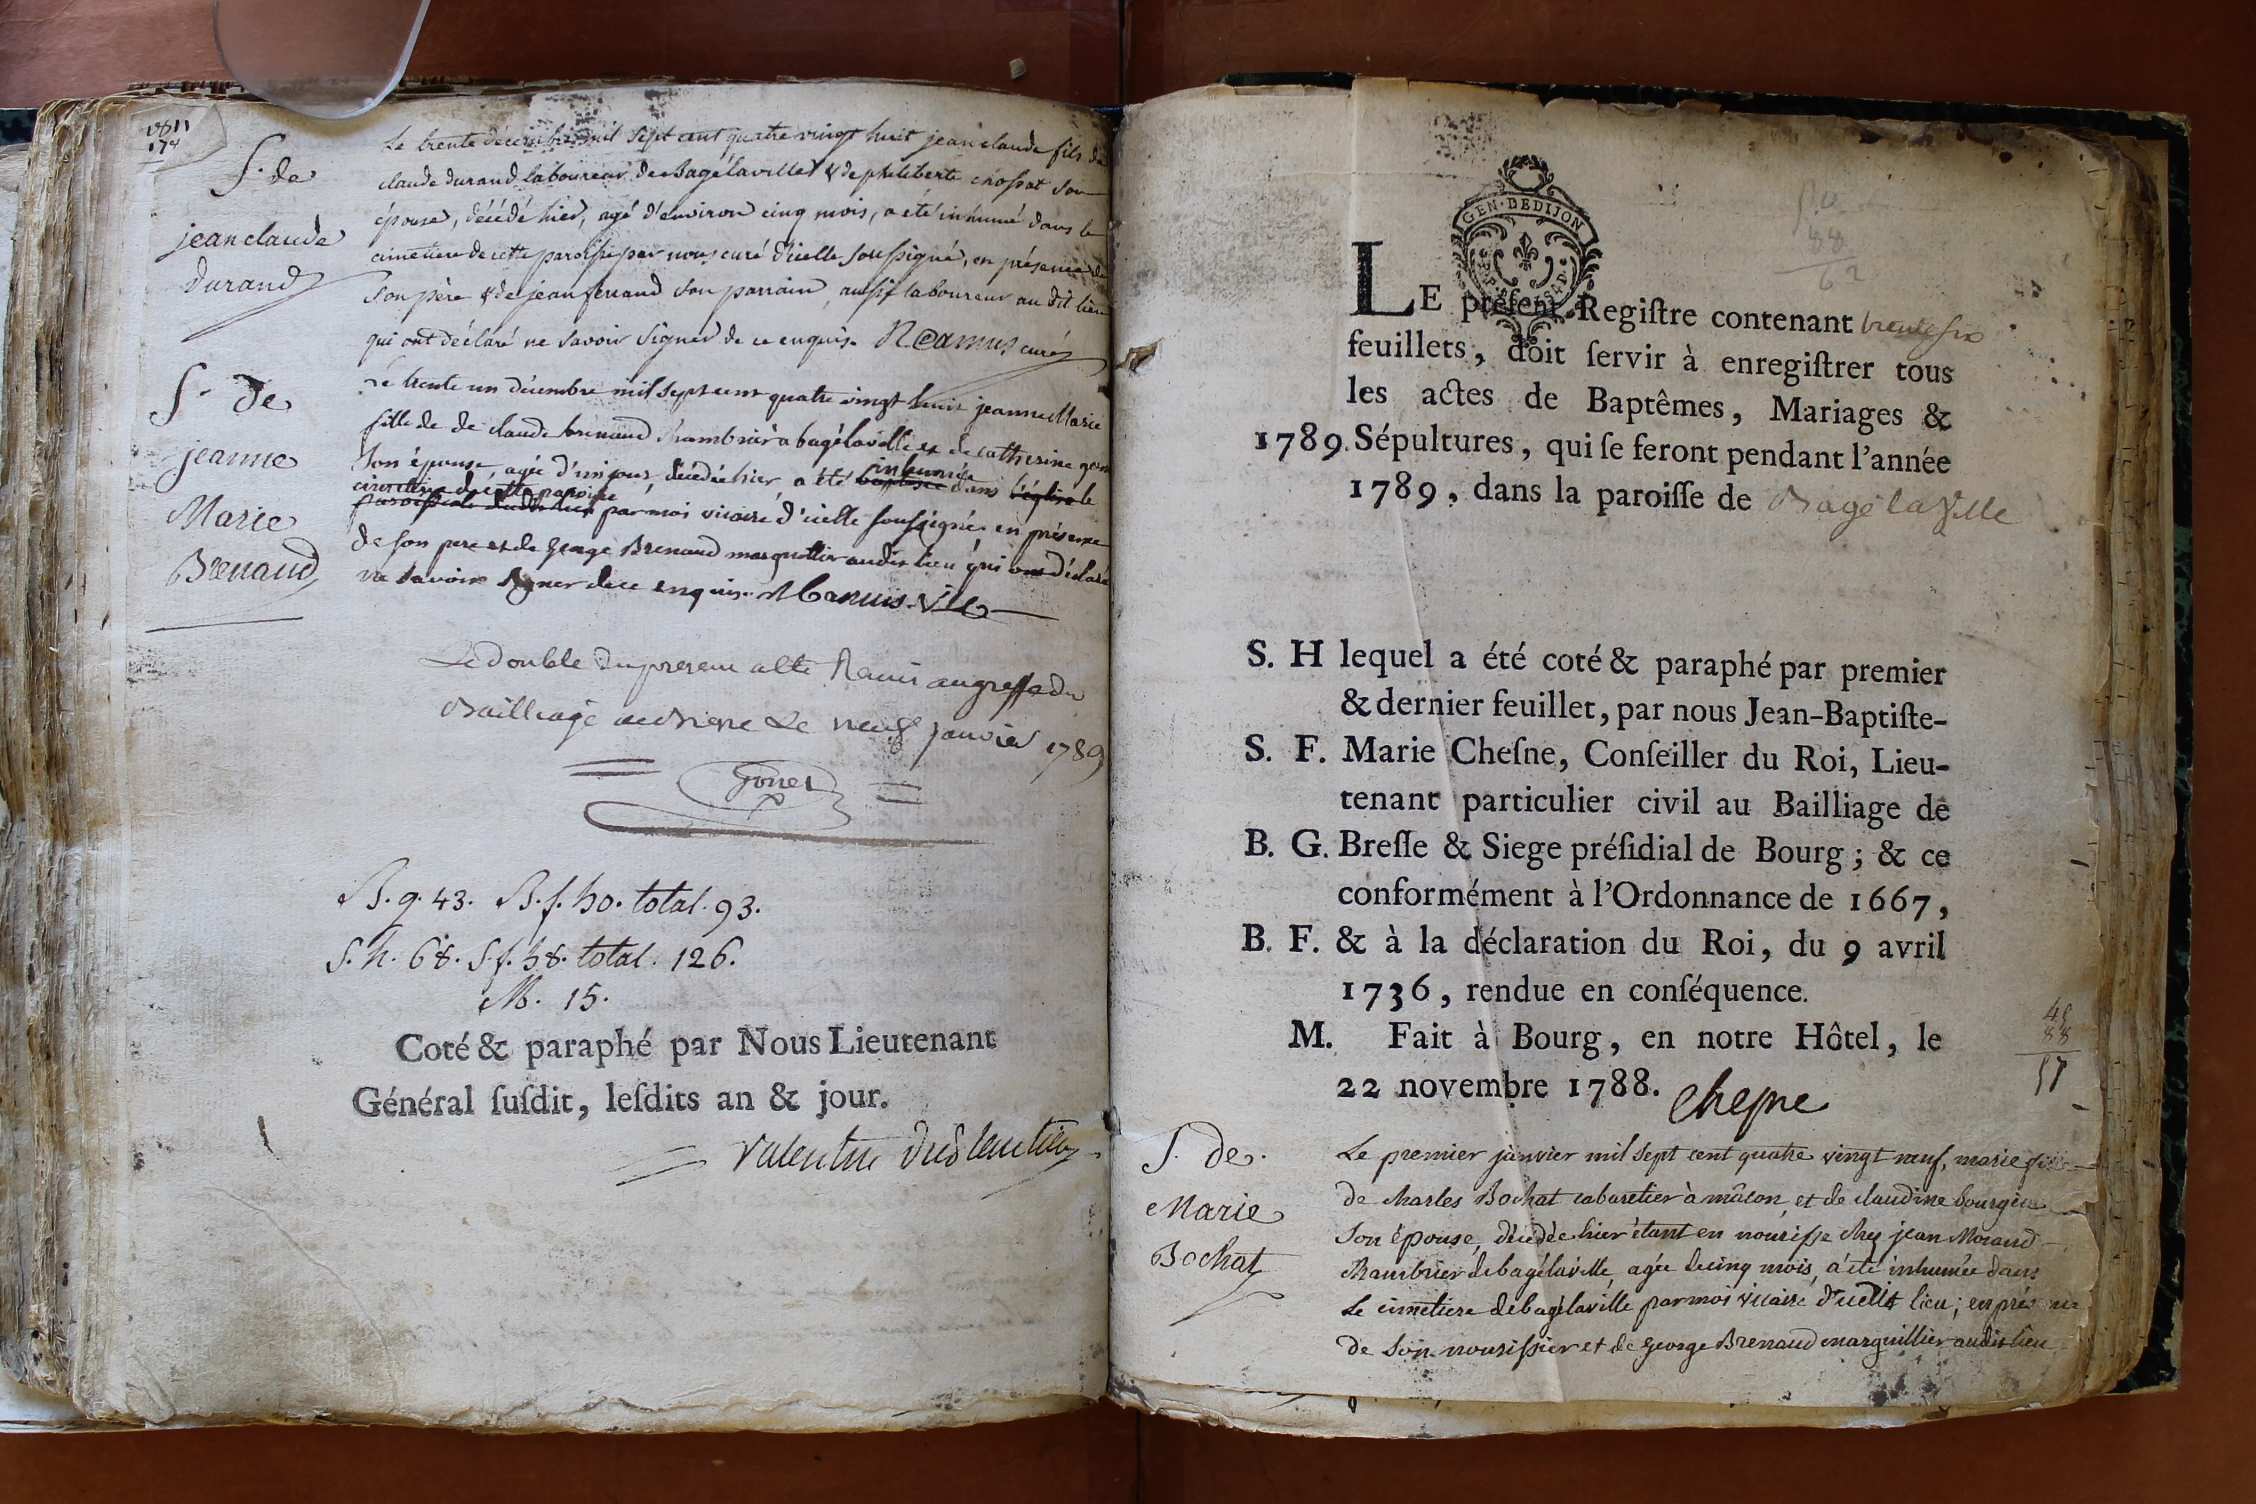 S. de
jean claude
durand
Le trente décembre mil sept cent quatre vingt huit jean claude fils de
claude durand laboureur de Bagélaville & de philiberte chossat son
épouse, décédé hier, agé d'environ cinq mois, a été inhumé dans le
cimetiere de cette paroisse par nous curé d'icelle soussigné, en présence de
son père & de jean ferrand son parrain, aussi laboureur au dit lieu
qui ont déclaré ne savoir signer de ce enquis. curé
S. de
jeanne
Marie
Brenaud
Le trente un décembre mil sept cent quatre vingt huit jeanne Marie
fille de de claude brenaud chambrier a bagélaville et de catherine
son épouse, agée d'un jour, décédée hier, a été baptisée inhumée dans l'église le
cimetiere de cette paroisse
paroissiale dudit lieu par moi vicaire d'icelle soussigné, en présence
de son pere et de George Brenaud marguillier audit lieu qui ont déclaré
ne savoir signer de ce enquis.
Le double du present a été Remis au greffe du
Bailliage de Bresse Le neuf janvier 1789
B. g. 43. B. f. 50. total. 93.
S. h. 68. S. f. 58. total. 126.
M. 15.
Coté & paraphé par Nous Lieutenant
Général ſuſdit, leſdits an & jour.
GEN. DE DIJON
LE préſent Regiſtre contenant trente six
feuillets, doit ſervir à enregiſtrer tous
les actes de Baptêmes, Mariages &
1789. Sépultures, qui ſe feront pendant l'année
1789, dans la paroiſſe de Bagé la Ville
S. H lequel a été coté & paraphé par premier
& dernier feuillet, par nous Jean-Baptiſte-
S. F. Marie Cheſne, Conſeiller du Roi, Lieu-
tenant particulier civil au Bailliage de
B. G. Breſſe & Siege préſidial de Bourg ; & ce
conformément à l'Ordonnance de 1667,
B. F. & à la déclaration du Roi, du 9 avril
1736, rendue en conſéquence.
M. Fait à Bourg, en notre Hôtel, le
22 novembre 1788. Chesne
S. de.
Marie
Bochat
Le premier janvier mil sept cent quatre vingt neuf, marie fille
de charles Bochat cabaretier à mâcon, et de claudine bourgeois
son épouse, décédée hier étant en nourisse chez jean Morand
chambrier de bagélaville, agée de cinq mois, a été inhumée dans
Le cimetiere de bagélaville par moi vicaire d'icelui lieu; en présence
de son nourissier et de George Brenaud marguillier audit lieu